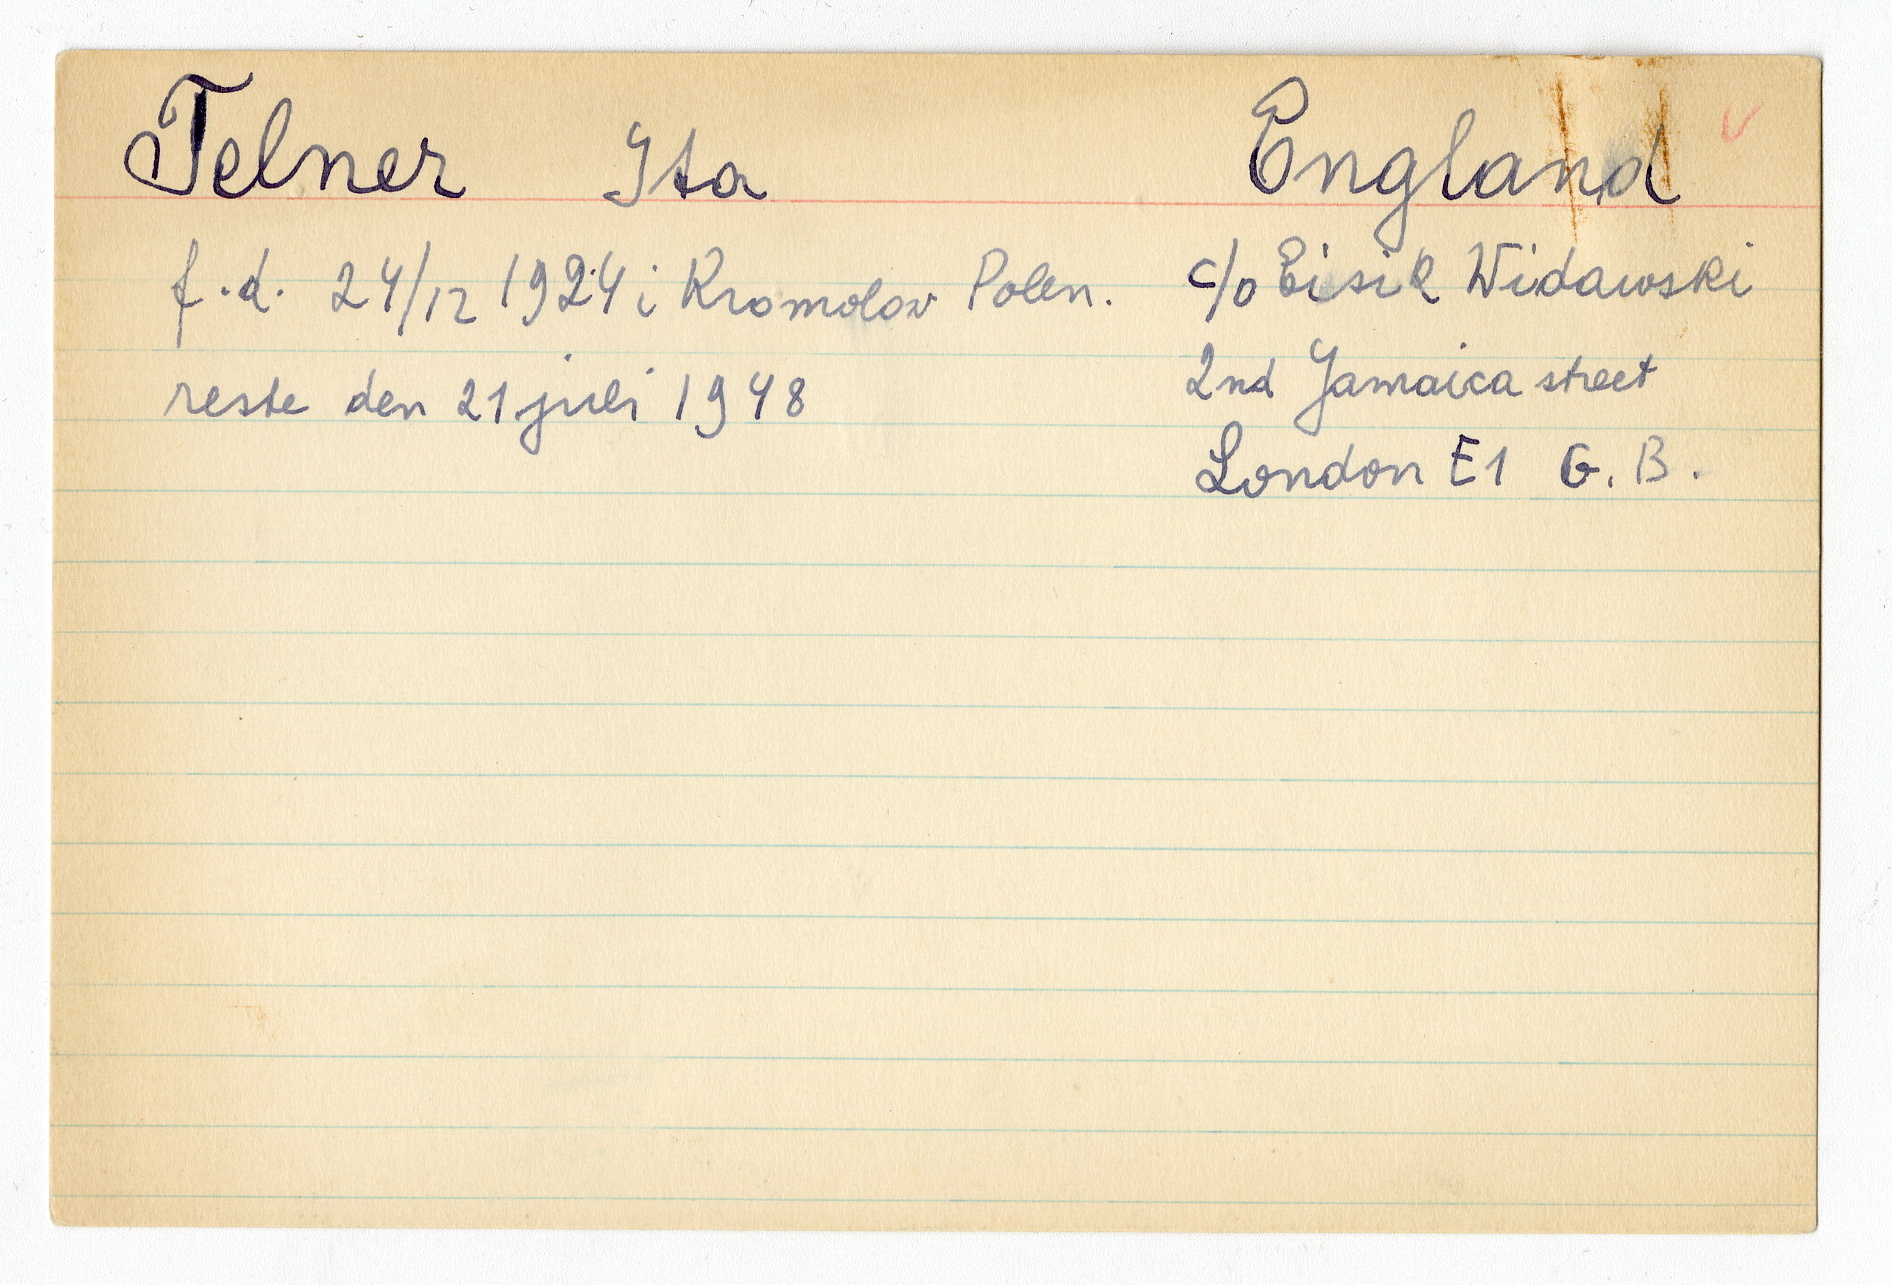 Telner Ita England
f.d. 24/12 1924 i Kromolov Polen. c/o Eisik Widawski
reste den 21 juli 1948 2nd Jamaica street
London E1 G.B.